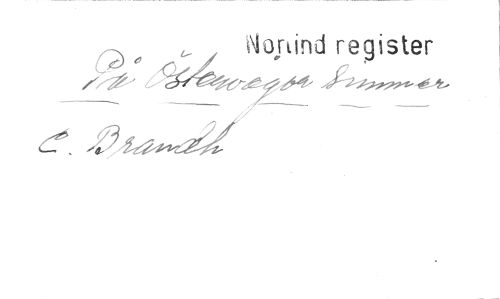 Norrlind register
På Östanvågor simmar
C. Brandh